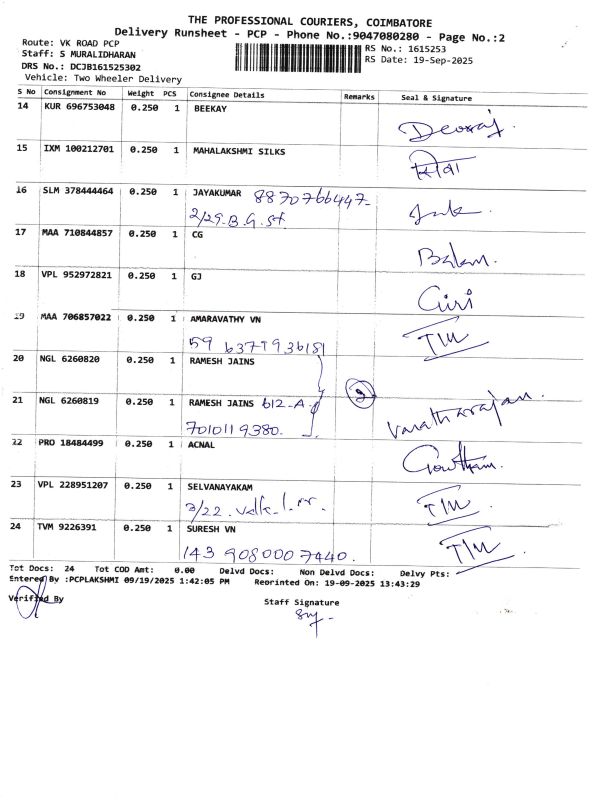 THE PROFESSIONAL COURIERS, COIMBATORE
Delivery Runsheet - PCP - Phone No.:9047080280 - Page No.:2
Route: VK ROAD PCP
Staff: S MURALIDHARAN
DRS No.: DCJB161525302
Vehicle: Two Wheeler Delivery
RS No.: 1615253
RS Date: 19-Sep-2025
S No Consignment No Weight PCS Consignee Details Remarks Seal & Signature
14 KUR 696753048 0.250 1 BEEKAY
Devaraj.
15 IXM 100212701 0.250 1 MAHALAKSHMI SILKS
16 SLM 378444464 0.250 1 JAYAKUMAR 8870766447-
2/29.B.G.St
17 MAA 710844857 0.250 1 CG
Balan.
18 VPL 952972821 0.250 1 GJ
Giri
19 MAA 706857022 0.250 1 AMARAVATHY VN
59
TM
20 NGL 6260820 0.250 1 RAMESH JAINS
2
21 NGL 6260819 0.250 1 RAMESH JAINS 612-A
7010119380.
Varatharajan.
22 PRO 18484499 0.250 1 ACNAL
Gowtham.
23 VPL 228951207 0.250 1 SELVANAYAKAM
3/22.
TM
24 TVM 9226391 0.250 1 SURESH VN
143 9080007440.
TM
Tot Docs: 24 Tot COD Amt: 0.00 Delvd Docs: Non Delvd Docs: Delvy Pts:
Entered By :PCPLAKSHMI 09/19/2025 1:42:05 PM Reprinted On: 19-09-2025 13:43:29
Verified By
Staff Signature